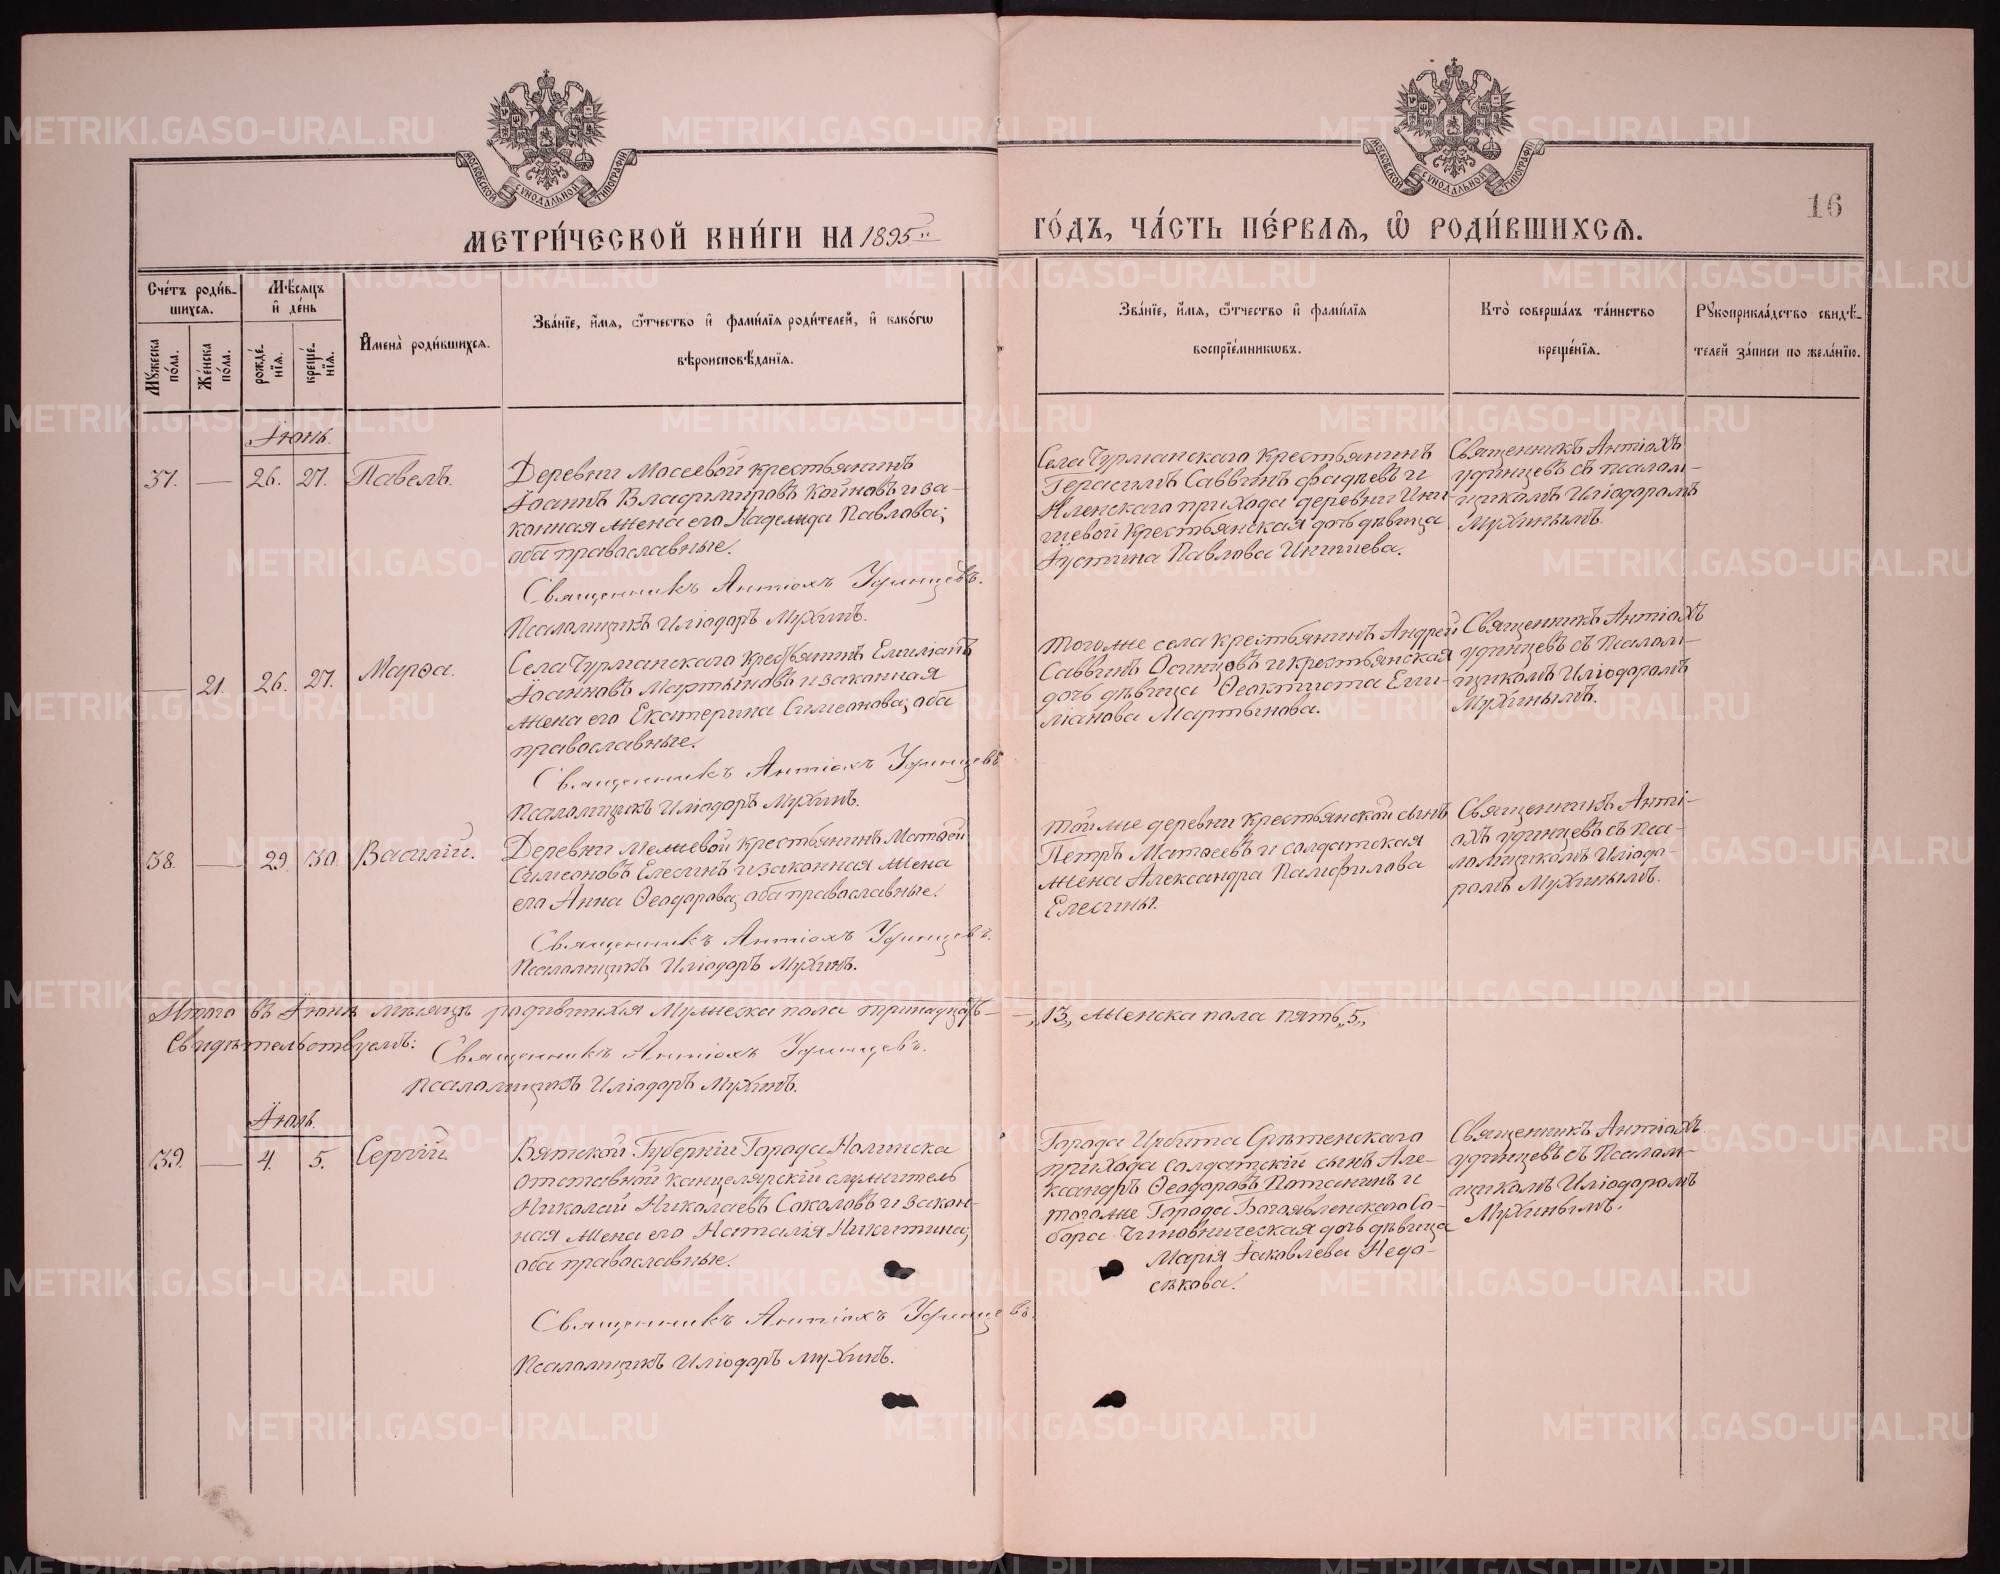 МЕТРИ́ЧЕСКОЙ КНИ́ГИ НА 1895 й
ГО́ДЪ, ЧА́СТЬ ПЕ́РВАѦ, Ѡ҆ РОДИ́ВШИХСѦ.
16
МОСКОВСКОЙ СѴНОДАЛЬНОЙ ТИПОГРАФІИ
МОСКОВСКОЙ СѴНОДАЛЬНОЙ ТИПОГРАФІИ
Сче́тъ роди́в-
шихсѧ.
Мꙋ́жеска по́ла.
Же́нска по́ла.
Мѣ́сѧцъ
и҆ де́нь
рожде́-
нїѧ.
креще́-
нїѧ.
И҆мена̀ роди́вшихсѧ.
Зва́нїе, и҆́мѧ, ѻ҆́тчество и҆ фами́лїѧ роди́телей, и҆ како́гѡ
вѣроисповѣ́данїѧ.
Зва́нїе, и҆́мѧ, ѻ҆́тчество и҆ фами́лїѧ
воспрїе́мникѡвъ.
Кто̀ соверша́лъ та́инство
креще́нїѧ.
Рꙋкоприкла́дство свидѣ́-
телей за́писи по жела́нїю.
Іюнь.
37. — 26. 27. Павелъ.
Деревни Мосеевой крестьянинъ
Іоаннъ Владимировъ Койновъ и за-
конная жена его Надежда Павлова;
оба православные.
Священникъ Антіохъ Удинцевъ.
Псаломщикъ Иліодоръ Мухинъ.
Села Чурманскаго крестьянинъ
Герасимъ Саввинъ Фадѣевъ и
прихода деревни Ини-
шевой крестьянская дочь дѣвица
Іустина Павлова Инишева.
Священникъ Антіохъ
Удинцевъ съ псалом-
щикомъ Иліодоромъ
Мухинымъ.
— 21. 26. 27. Марѳа.
Села Чурманскаго крестьянинъ Емиліанъ
Іоанновъ Мартыновъ и законная
жена его Екатерина Симеонова; оба
православные.
Священникъ Антіохъ Удинцевъ
Псаломщикъ Иліодоръ Мухинъ.
Того же села крестьянинъ Андрей
Саввинъ Осинцовъ и крестьянская
дочь дѣвица Ѳеоктиста Еми-
ліанова Мартынова.
Священникъ Антіохъ
Удинцевъ съ Псалом-
щикомъ Иліодоромъ
Мухинымъ.
38. — 29. 30. Василій.
Деревни крестьянинъ Матѳей
Симеоновъ Елесинъ и законная жена
его Анна Ѳеодорова; оба православные.
Священникъ Антіохъ Удинцевъ.
Псаломщикъ Иліодоръ Мухинъ.
Той же деревни крестьянской сынъ
Петръ Матѳеевъ и солдатская
жена Александра Памфилова
Елесины.
Священникъ Анті-
охъ Удинцевъ съ пса-
ломщикомъ Иліодо-
ромъ Мухинымъ.
Итого въ Іюнѣ мѣсяцѣ родившихся Мужеска пола тринадцать — „13„ Женска пола пять „5„
Свидѣтельствуемъ: Священникъ Антіохъ Удинцевъ.
Псаломщикъ Иліодоръ Мухинъ.
Іюль.
39. — 4. 5. Сергій
Вятской Губерніи Города Нолинска
отставной канцелярскій служитель
Николай Николаевъ Соколовъ и закон-
ная жена его Наталія Никитина;
оба православные.
Священникъ Антіохъ Удинцевъ.
Псаломщикъ Иліодоръ Мухинъ.
Города Ирбита Срѣтенскаго
прихода солдатскій сынъ Але-
ксандръ Ѳеодоровъ Потанинъ и
того же Города Богоявленскаго Со-
бора Чиновническая дочь дѣвица
Марія Іаковлева Недо-
сѣкова.
Священникъ Антіохъ
Удинцевъ съ Псалом-
щикомъ Иліодоромъ
Мухинымъ.
METRIKI.GASO-URAL.RU